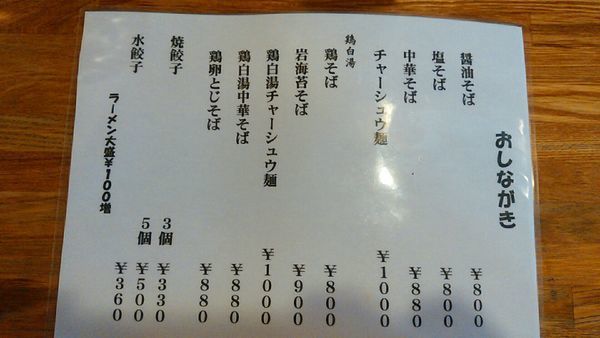 おしながき
醤油そば ¥800
塩そば ¥800
中華そば ¥880
チャーシュウ麺 ¥1000
鶏白湯
鶏そば ¥800
岩海苔そば ¥900
鶏白湯チャーシュウ麺 ¥1000
鶏白湯中華そば ¥880
鶏卵とじそば ¥880
焼餃子 3個 ¥330
5個 ¥500
水餃子 ¥360
ラーメン大盛¥100増